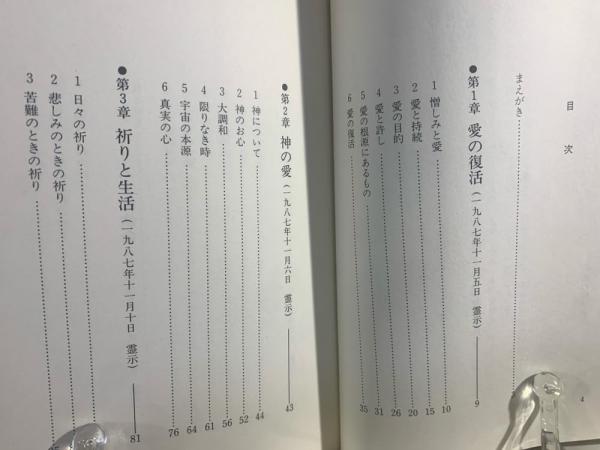 目次
まえがき
●第1章 愛の復活(一九八七年十一月五日 霊示) 9
1 憎しみと愛 10
2 愛と持続 15
3 愛の目的 20
4 愛と許し 26
5 愛の根源にあるもの 31
6 愛の復活 35
4
●第2章 神の愛(一九八七年十一月六日 霊示) 43
1 神について 44
2 神のお心 52
3 大調和 56
4 限りなき時 61
5 宇宙の本源 64
6 真実の心 76
●第3章 祈りと生活(一九八七年十一月十日 霊示) 81
1 日々の祈り
2 悲しみのときの祈り
3 苦難のときの祈り